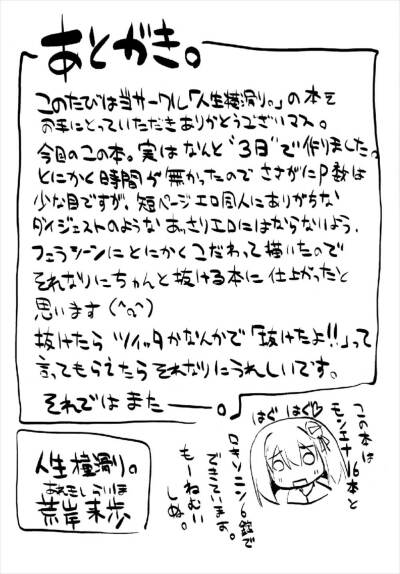 あとがき。
このたびは当サークル「人生横滑り。」の本を
お手にとっていただきありがとうございマス。
今回のこの本。実はなんと“3日”で作りました。
とにかく時間が無かったので ささがにP数は
少な目ですが、短ページエロ同人にありがちな
ダイジェストのような あっさりエロにはならないよう、
フェラシーンにとにかくこだわって描いたので
それなりにちゃんと抜ける本に仕上がったと
思います(^q^)
抜けたら ツイッタかなんかで「抜けたよ!!」って
言ってもらえたら それなりにうれしいです。
それでは また――。
はぐ はぐ♡
この本は
モンエナ16本と
ロキソニン6錠で
できています。
もーねむい
しぬ。
人生横滑り。
あれきし らいほ
荒岸来歩